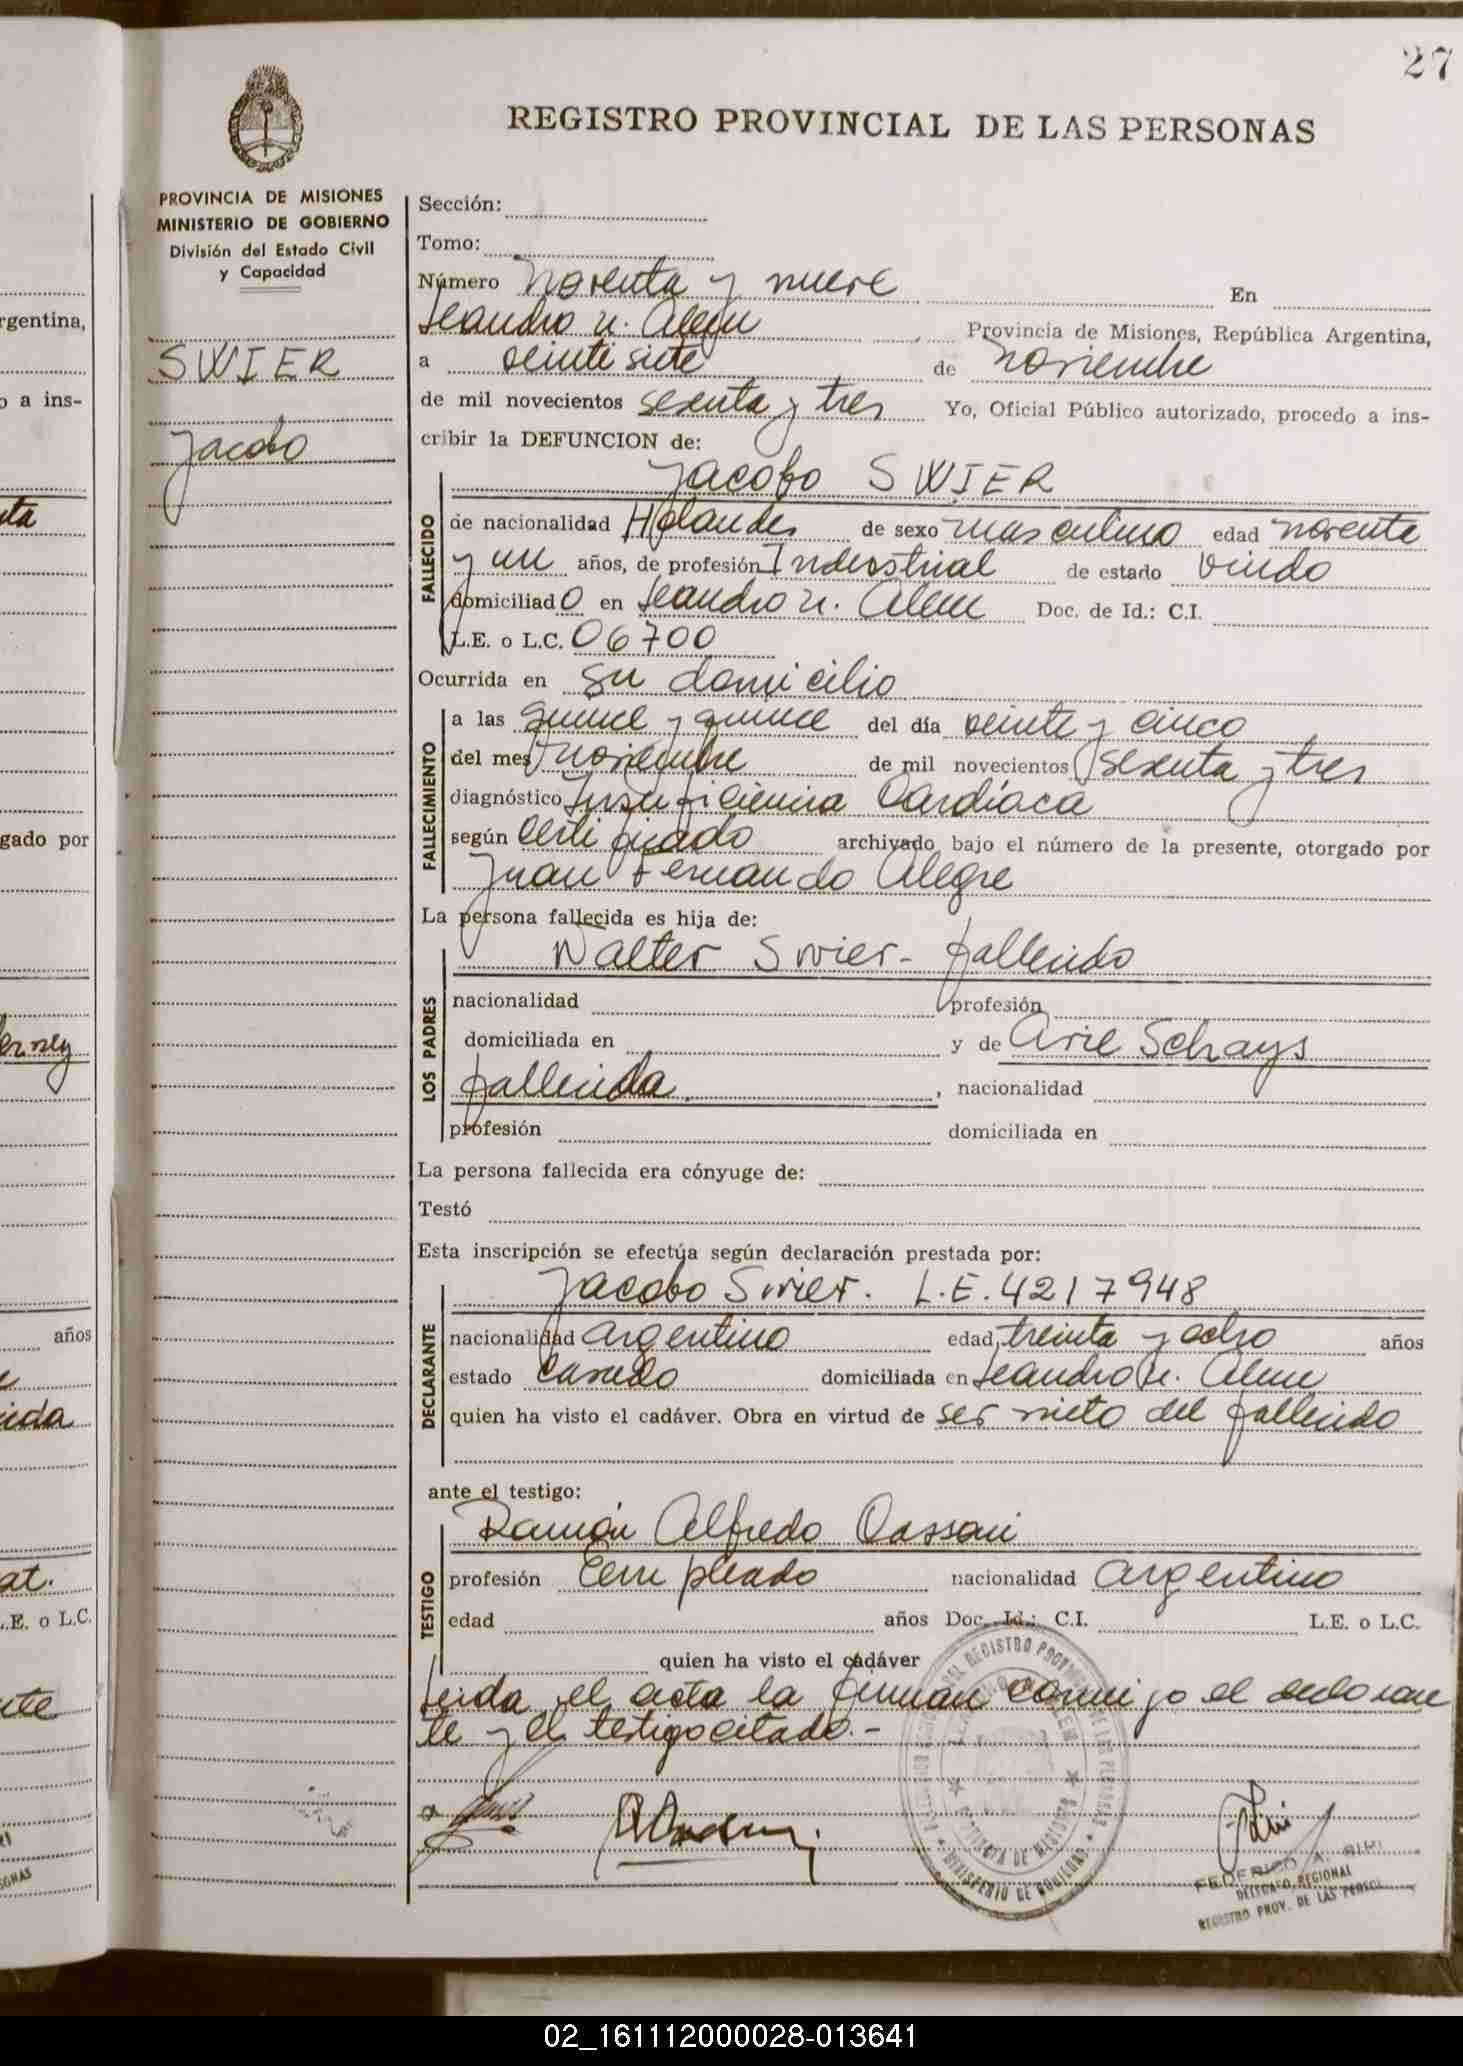 27
REGISTRO PROVINCIAL DE LAS PERSONAS
PROVINCIA DE MISIONES
MINISTERIO DE GOBIERNO
División del Estado Civil
y Capacidad
SWIER
Jacobo
Sección:
Tomo:
Número Noventa y nueve En
Leandro N. Alem Provincia de Misiones, República Argentina,
a veinti siete de noviembre
de mil novecientos sesenta y tres Yo, Oficial Público autorizado, procedo a ins-
cribir la DEFUNCION de:
Jacobo SWIER
FALLECIDO
de nacionalidad Holandes de sexo masculino edad noventa
y un años, de profesión Industrial de estado Viudo
domiciliado en Leandro N. Alem Doc. de Id.: C.I.
L.E. o L.C. 06700
Ocurrida en su domicilio
FALLECIMIENTO
a las quince y quince del día veinte y cinco
del mes noviembre de mil novecientos sesenta y tres
diagnóstico Insuficiencia Cardíaca
según certificado archivado bajo el número de la presente, otorgado por
Juan Fernando Alegre
La persona fallecida es hija de:
LOS PADRES
Walter Swier - fallecido
nacionalidad profesión
domiciliada en y de Arie Schays
fallecida. , nacionalidad
profesión domiciliada en
La persona fallecida era cónyuge de:
Testó
Esta inscripción se efectúa según declaración prestada por:
DECLARANTE
Jacobo Swier. L.E. 4217948
nacionalidad argentino edad treinta y ocho años
estado casado domiciliada en Leandro N. Alem
quien ha visto el cadáver. Obra en virtud de ser nieto del fallecido
ante el testigo:
TESTIGO
Ramón Alfredo
profesión Empleado nacionalidad argentino
edad años Doc. Id.: C.I. L.E. o L.C.
quien ha visto el cadáver
Leida el acta la firman conmigo el declaran
te y el testigo citado.-
MINISTERIO DE GOBIERNO
PROVINCIA DE MISIONES
FEDERICO A.
DELEGADO REGIONAL
REGISTRO PROV. DE LAS PERSO
rgentina,
o a ins-
gado por
años
at.
L.E. o L.C.
02_161112000028-013641